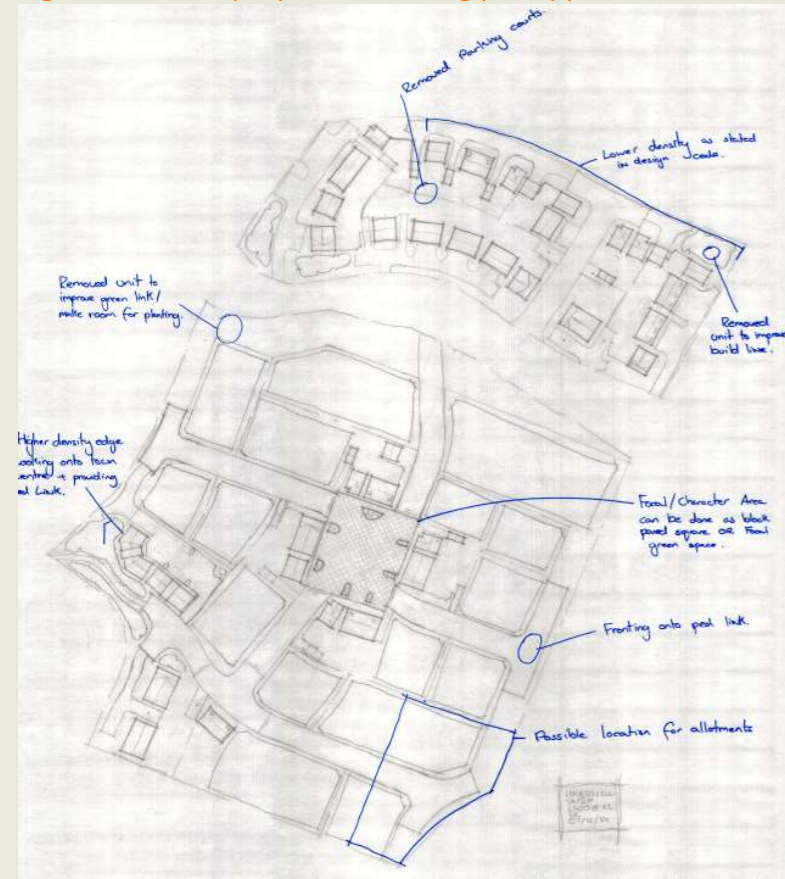 Removed parking courts.
Lower density as stated
in design code.
Removed unit to
improve green link/
make room for planting.
Removed
unit to improve
build line.
Higher density edge
looking onto town
centre + providing
ped Link.
Focal/Character Area
can be done as block
paved square OR Focal
green space.
Fronting onto ped link.
Possible location for allotments